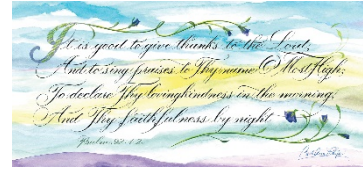 It is good to give thanks to the Lord,
And to sing praises to Thy name O Most High;
To declare Thy lovingkindness in the morning,
And Thy faithfulness by night
Psalm 92:1,2